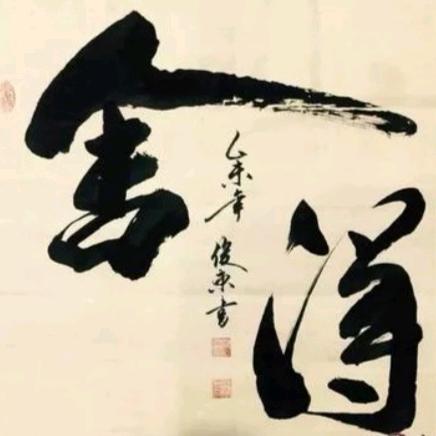 舍得
乙未年
俊书